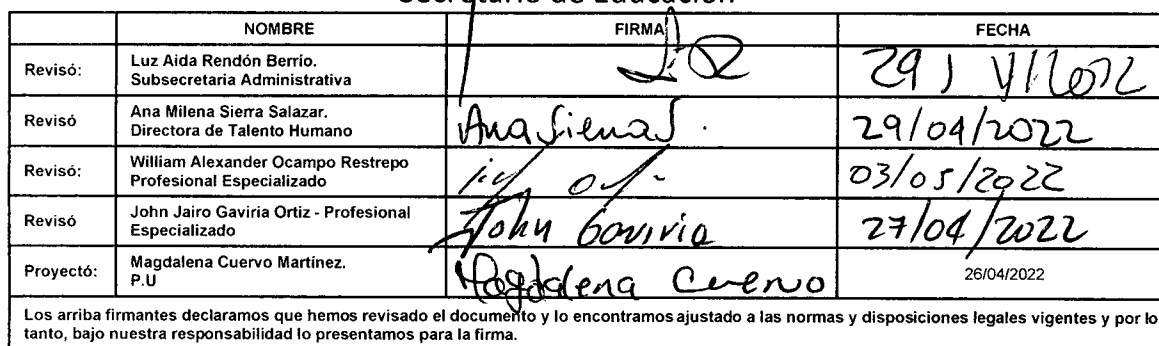 Secretario de Educación
NOMBRE FIRMA FECHA
Revisó: Luz Aida Rendón Berrío.
Subsecretaria Administrativa
Revisó Ana Milena Sierra Salazar.
Directora de Talento Humano Ana Sierra S. 29/04/2022
Revisó: William Alexander Ocampo Restrepo
Profesional Especializado 03/05/2022
Revisó John Jairo Gaviria Ortiz - Profesional
Especializado John Gaviria 27/04/2022
Proyectó: Magdalena Cuervo Martínez.
P.U Magdalena Cuervo 26/04/2022
Los arriba firmantes declaramos que hemos revisado el documento y lo encontramos ajustado a las normas y disposiciones legales vigentes y por lo
tanto, bajo nuestra responsabilidad lo presentamos para la firma.